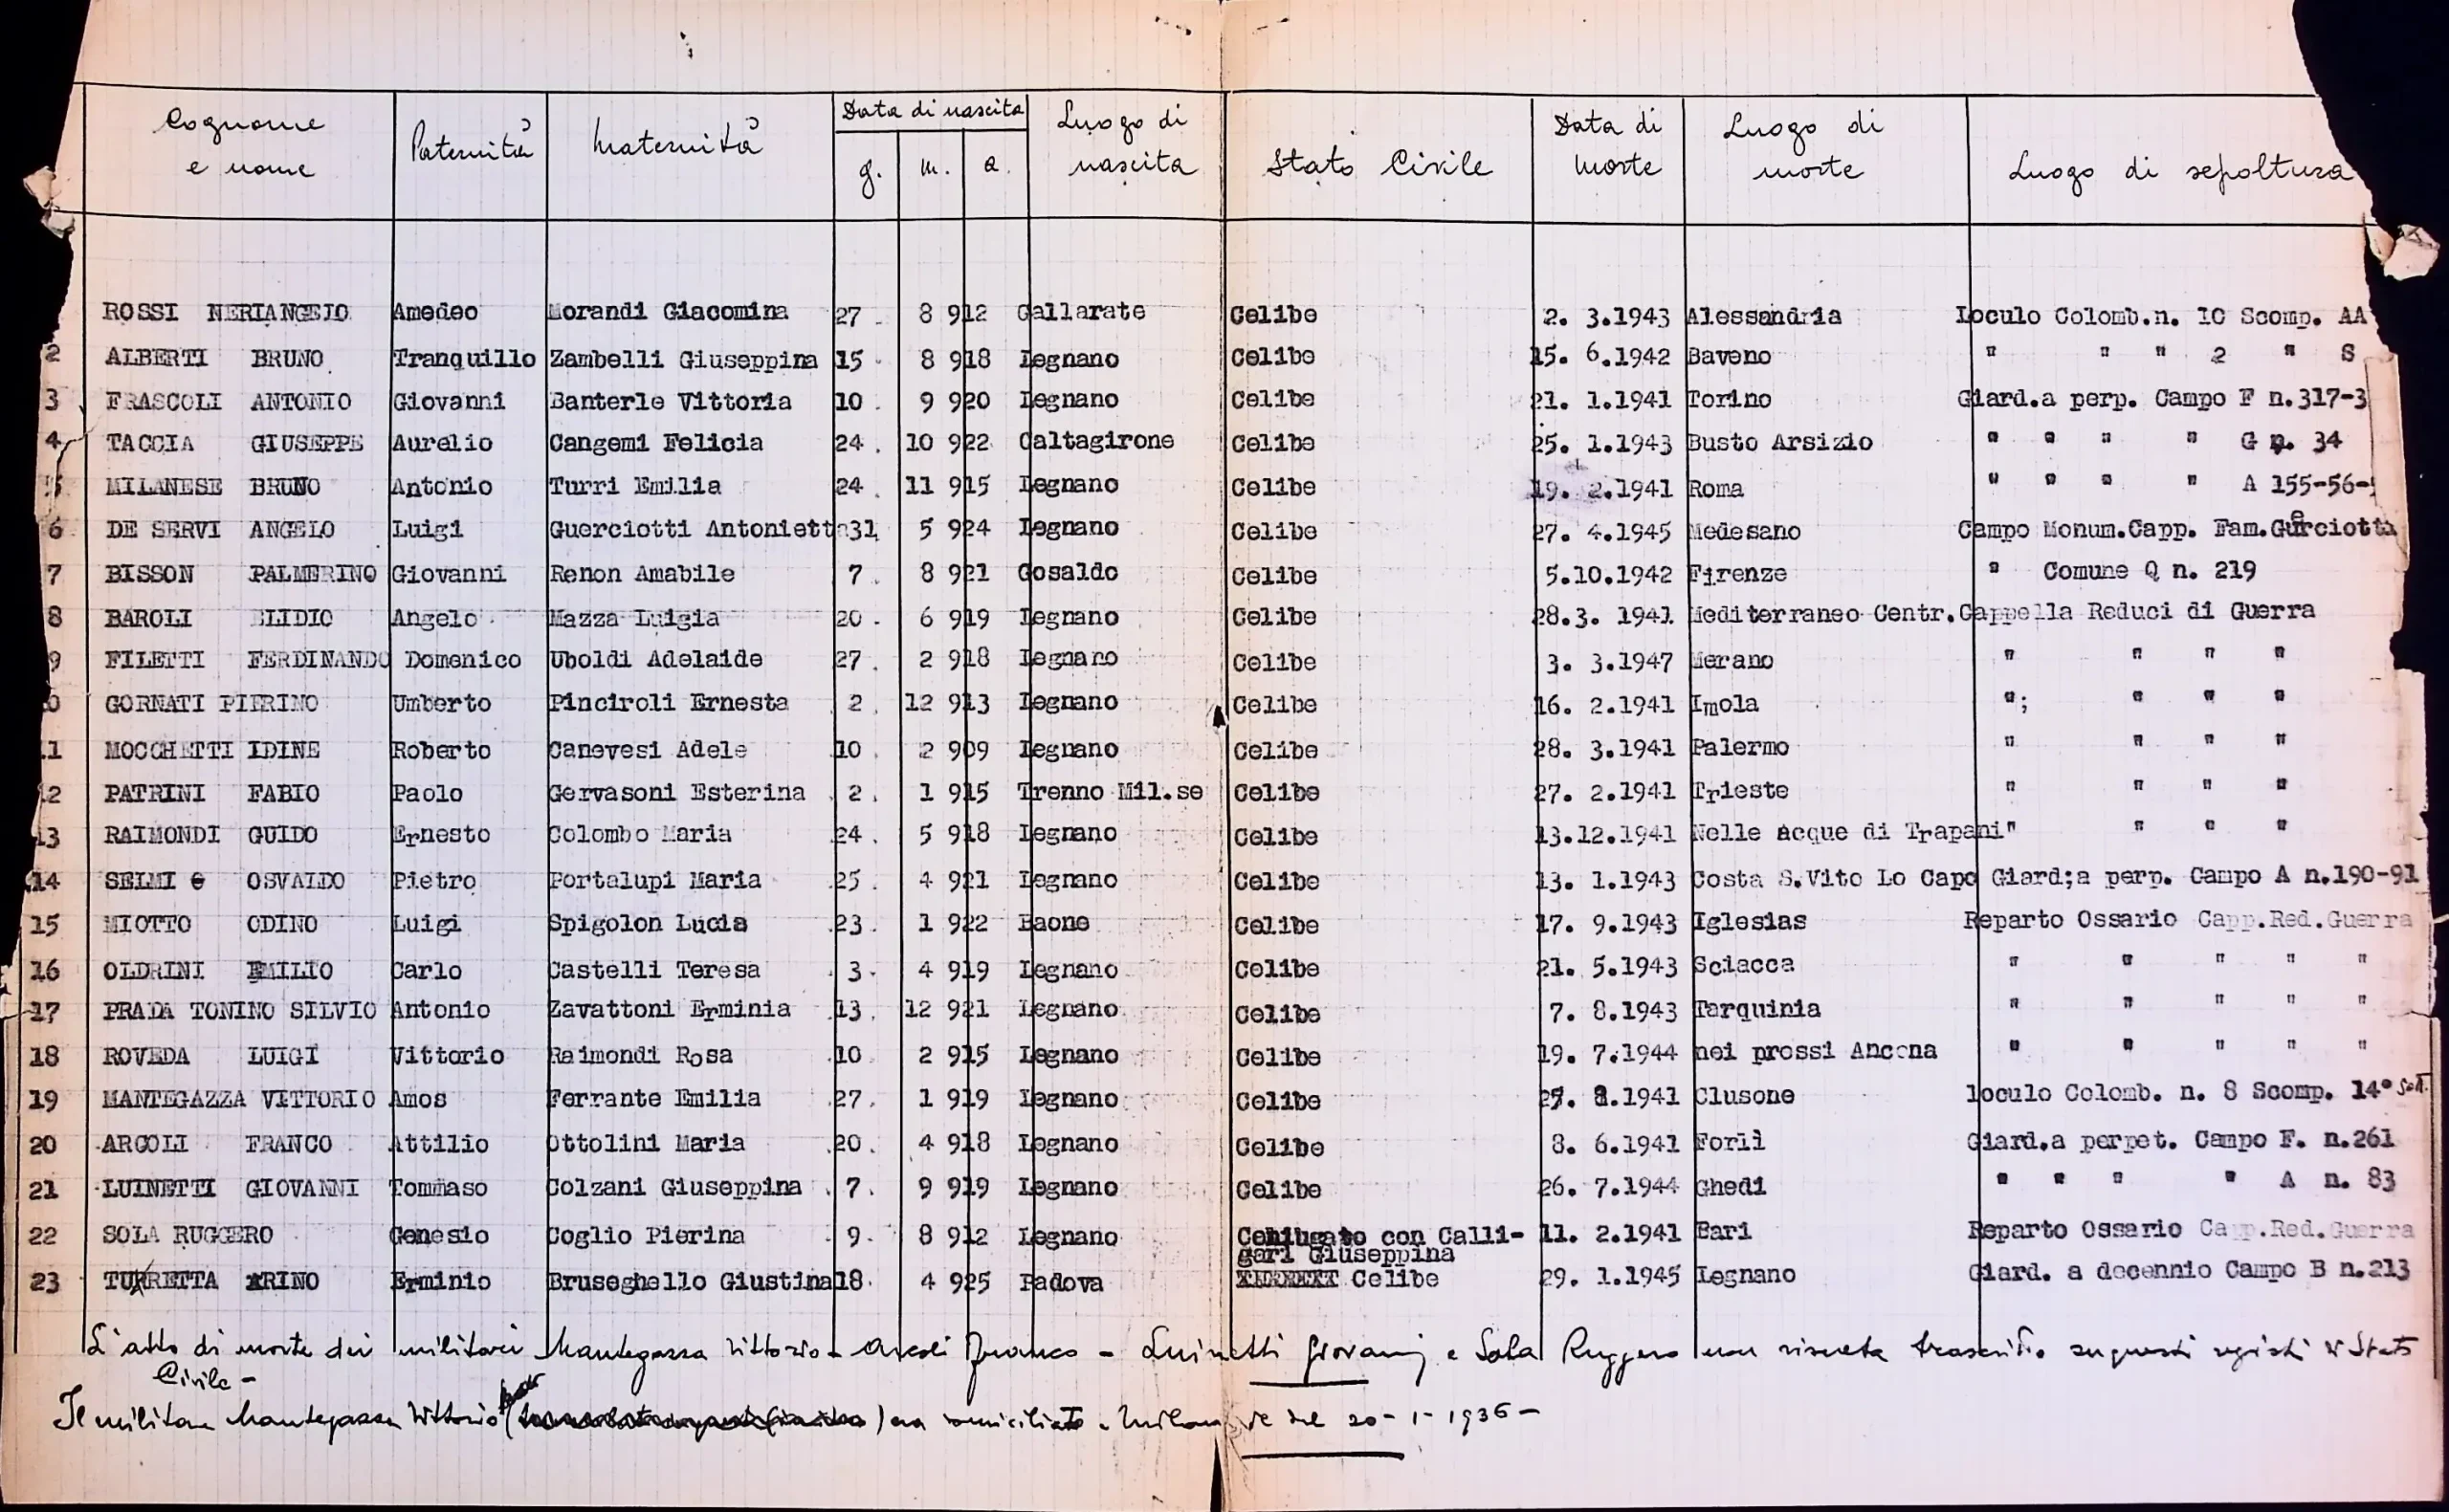 Cognome e nome | Paternità | Maternità | Data di nascita g. m. a. | Luogo di nascita | Stato Civile | Data di morte | Luogo di morte | Luogo di sepoltura
ROSSI NERIANGELO Amedeo Morandi Giacomina 27 8 912 Gallarate Celibe 2. 3.1943 Alessandria Loculo Colomb.n. 10 Scomp. AA
2 ALBERTI BRUNO Tranquillo Zambelli Giuseppina 15 8 918 Legnano Celibe 15. 6.1942 Baveno " " " 2 " S
3 FRASCOLI ANTONIO Giovanni Banterle Vittoria 10 9 920 Legnano Celibe 21. 1.1941 Torino Giard.a perp. Campo F n.317-3
4 TACCIA GIUSEPPE Aurelio Cangemi Felicia 24 10 922 Caltagirone Celibe 25. 1.1943 Busto Arsizio " " " " G n. 34
5 MILANESE BRUNO Antonio Turri Emilia 24 11 915 Legnano Celibe 19. 2.1941 Roma " " " " A 155-56-
6 DE SERVI ANGELO Luigi Guerciotti Antonietta 31 5 924 Legnano Celibe 27. 4.1945 Medesano Campo Monum.Capp. Fam.Guerciotta
7 BISSON PALMERINO Giovanni Renon Amabile 7 8 921 Gosaldo Celibe 5.10.1942 Firenze " Comune Q n. 219
8 BAROLI ELIDIO Angelo Mazza Luigia 20 6 919 Legnano Celibe 28.3. 1941 Mediterraneo Centr. Cappella Reduci di Guerra
9 FILETTI FERDINANDO Domenico Uboldi Adelaide 27 2 918 Legnano Celibe 3. 3.1947 Merano " " " "
0 GORNATI PIERINO Umberto Pinciroli Ernesta 2 12 913 Legnano Celibe 16. 2.1941 Imola "; " " "
11 MOCCHETTI IDINE Roberto Canevesi Adele 10 2 909 Legnano Celibe 28. 3.1941 Palermo " " " "
12 PATRINI FABIO Paolo Gervasoni Esterina 2 1 915 Trenno Mil.se Celibe 27. 2.1941 Trieste " " " "
13 RAIMONDI GUIDO Ernesto Colombo Maria 24 5 918 Legnano Celibe 13.12.1941 Nelle Acque di Trapani " " " "
14 SELMI OSVALDO Pietro Portalupi Maria 25 4 921 Legnano Celibe 13. 1.1943 Costa S.Vito Lo Capo Giard;a perp. Campo A n.190-91
15 MIOTTO ODINO Luigi Spigolon Lucia 23 1 922 Baone Celibe 17. 9.1943 Iglesias Reparto Ossario Capp.Red.Guerra
16 OLDRINI EMILIO Carlo Castelli Teresa 3 4 919 Legnano Celibe 21. 5.1943 Sciacca " " " " "
17 PRADA TONINO SILVIO Antonio Zavattoni Erminia 13 12 921 Legnano Celibe 7. 8.1943 Tarquinia " " " " "
18 ROVEDA LUIGI Vittorio Raimondi Rosa 10 2 915 Legnano Celibe 19. 7.1944 nei prossi Ancona " " " " "
19 MANTEGAZZA VITTORIO Amos Ferrante Emilia 27 1 919 Legnano Celibe .1941 Clusone loculo Colomb. n. 8 Scomp. 14°
20 ARCOLI FRANCO Attilio Ottolini Maria 20 4 918 Legnano Celibe 8. 6.1941 Forlì Giard.a perpet. Campo F. n.261
21 LUINETTI GIOVANNI Tommaso Colzani Giuseppina 7 9 919 Legnano Celibe 26. 7.1944 Ghedi " " " " A n. 83
22 SOLA RUGGERO Genesio Coglio Pierina 9 8 912 Legnano Coniugato con Calli- 11. 2.1941 Bari Reparto Ossario Capp.Red.Guerra
gari Giuseppina
23 TURRETTA ARINO Erminio Bruseghello Giustina 18 4 925 Padova Celibe 29. 1.1945 Legnano Giard. a decennio Campo B n.213
L'atto di morte dei militari Mantegazza Vittorio - Arcoli Franco - Luinetti Giovanni e Sola Ruggero non risulta trascritto su questi registri di Stato
Civile -
Il militare Mantegazza Vittorio era domiciliato a Milano dal 20-1-1936 -